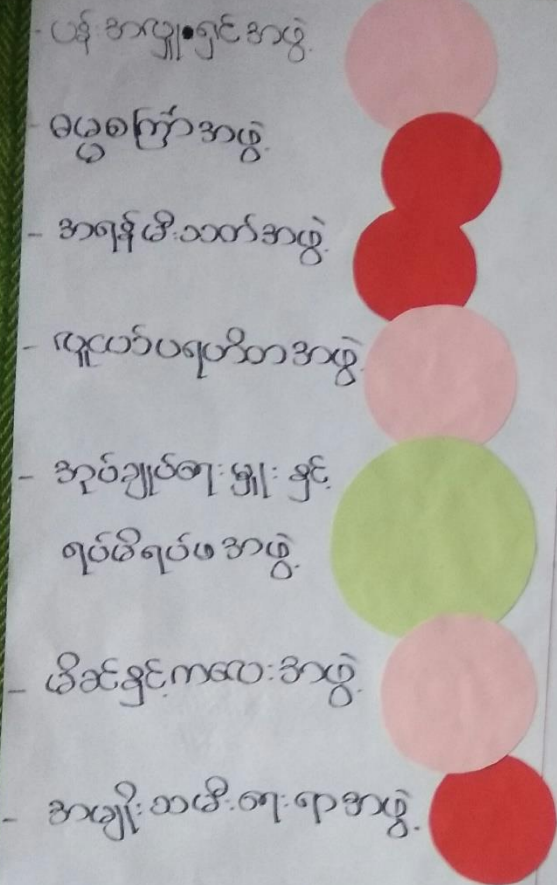 - ပန်းအလှူရှင်အဖွဲ့
- ဓမ္မစကြာအဖွဲ့
- အရန်မီးသတ်အဖွဲ့
- လူငယ်ပရဟိတအဖွဲ့
- အုပ်ချုပ်ရေးမှူးနှင့်
ရပ်မိရပ်ဖအဖွဲ့
- မိခင်နှင့်ကလေးအဖွဲ့
- အမျိုးသမီးရေးရာအဖွဲ့